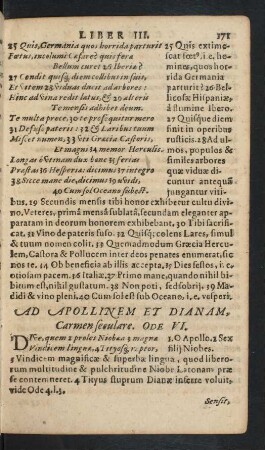 LIBER III. 171
25 Quis, Germania quos horrida parturit
Fœtus, incolumi Cæsare? quis fera
Bellum curet 26 Iberiæ?
27 Condit quisq; diem collibus in suis,
Et vitem 28 viduas ducit ad arbores:
Hinc ad vina redit lætus, & 29 alteris
Te mensis adhibet deum.
Te multa prece, 30 te prosequitur mero
31 Defuso pateris: 32 & Laribus tuum
Miscet numen, 33 vti Græcia Castoris,
Et magni 34 memor Herculis.
Longas ô vtinam dux bone 35 ferias
Præstas 36 Hesperiæ: dicimus 37 integro
38 Sicci mane die, dicimus 39 vvidi,
40 Cum sol Oceano subest.
25 Quis extime-
scat fœt⁹, i.e. ho-
mines, quos hor-
rida Germania
parturit: 26 Bel-
licosæ Hispaniæ,
27 Quisque diem
finit in operibus
rusticis. 28 Ad ul-
mos, populos &
similes arbores
quæ viduæ di-
cuntur antequā
junguntur viti-
bus. 29 Secundis mensis tibi honor exhibetur cultu divino.
Veteres, primâ mensâ sublatâ, secundam eleganter appa-
paratam in deorum honorem exhibebant. 30 Tibi sacrifi-
cat. 31 Vino de pateris fuso. 32 Quisq; colens Lares, simul
& tuum nomen colit. 33 Quemadmodum Græcia Hercu-
lem, Castora & Pollucem inter deos penates enumerat, sic
nos te. 34 Ob beneficia ab illis accepta. 35 Dies festos, i. e
otiosam pacem. 36 Italiæ. 37 Primo mane, quando nihil bi-
bitum est, nihil gustatum. 38 Non poti, sed sobrij. 39 Ma-
didi & vino pleni. 40 Cum sol est sub Oceano, i.e. vesperi.
AD APOLLINEM ET DIANAM,
Carmen seculare. ODE VI.
Dive, quem 2 proles Niobea 3 magnæ
Vindicem linguæ, 4 Tityosq; raptor,
1. O Apollo. 2 Sex
filij Niobes.
3 Vindicem magnificæ & superbæ linguæ, quod libero-
rum multitudine & pulchritudine Niobe Latonam præ
se contemneret. 4 Tityus stuprum Dianæ inferre voluit,
vide Ode 4. l. 3.
Sensit,